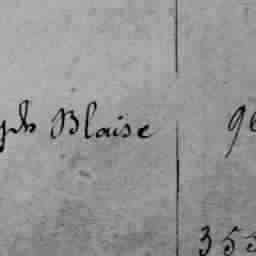 Blaise 96
353